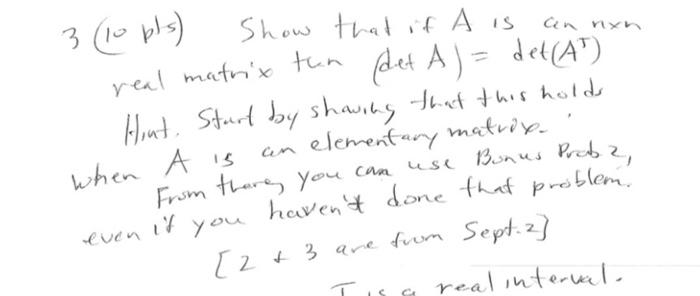 3 (10 pts) Show that if A is an nxn
real matrix then (det A) = det(Aᵀ)
Hint. Start by showing that this holds
when A is an elementary matrix.
From there, you can use Bonus Prob 2,
even if you haven't done that problem.
[2 + 3 are from Sept. 2]
I is a real interval.